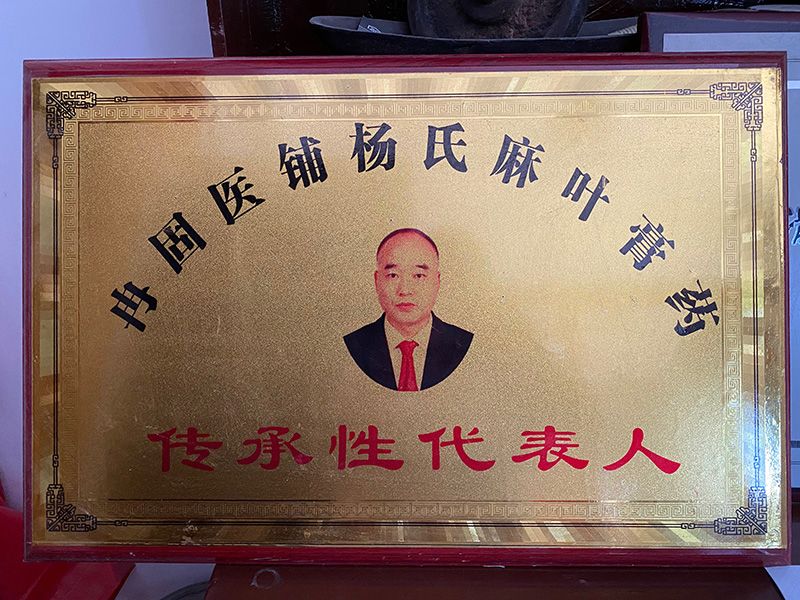 冉固医铺杨氏麻叶膏药
传承性代表人